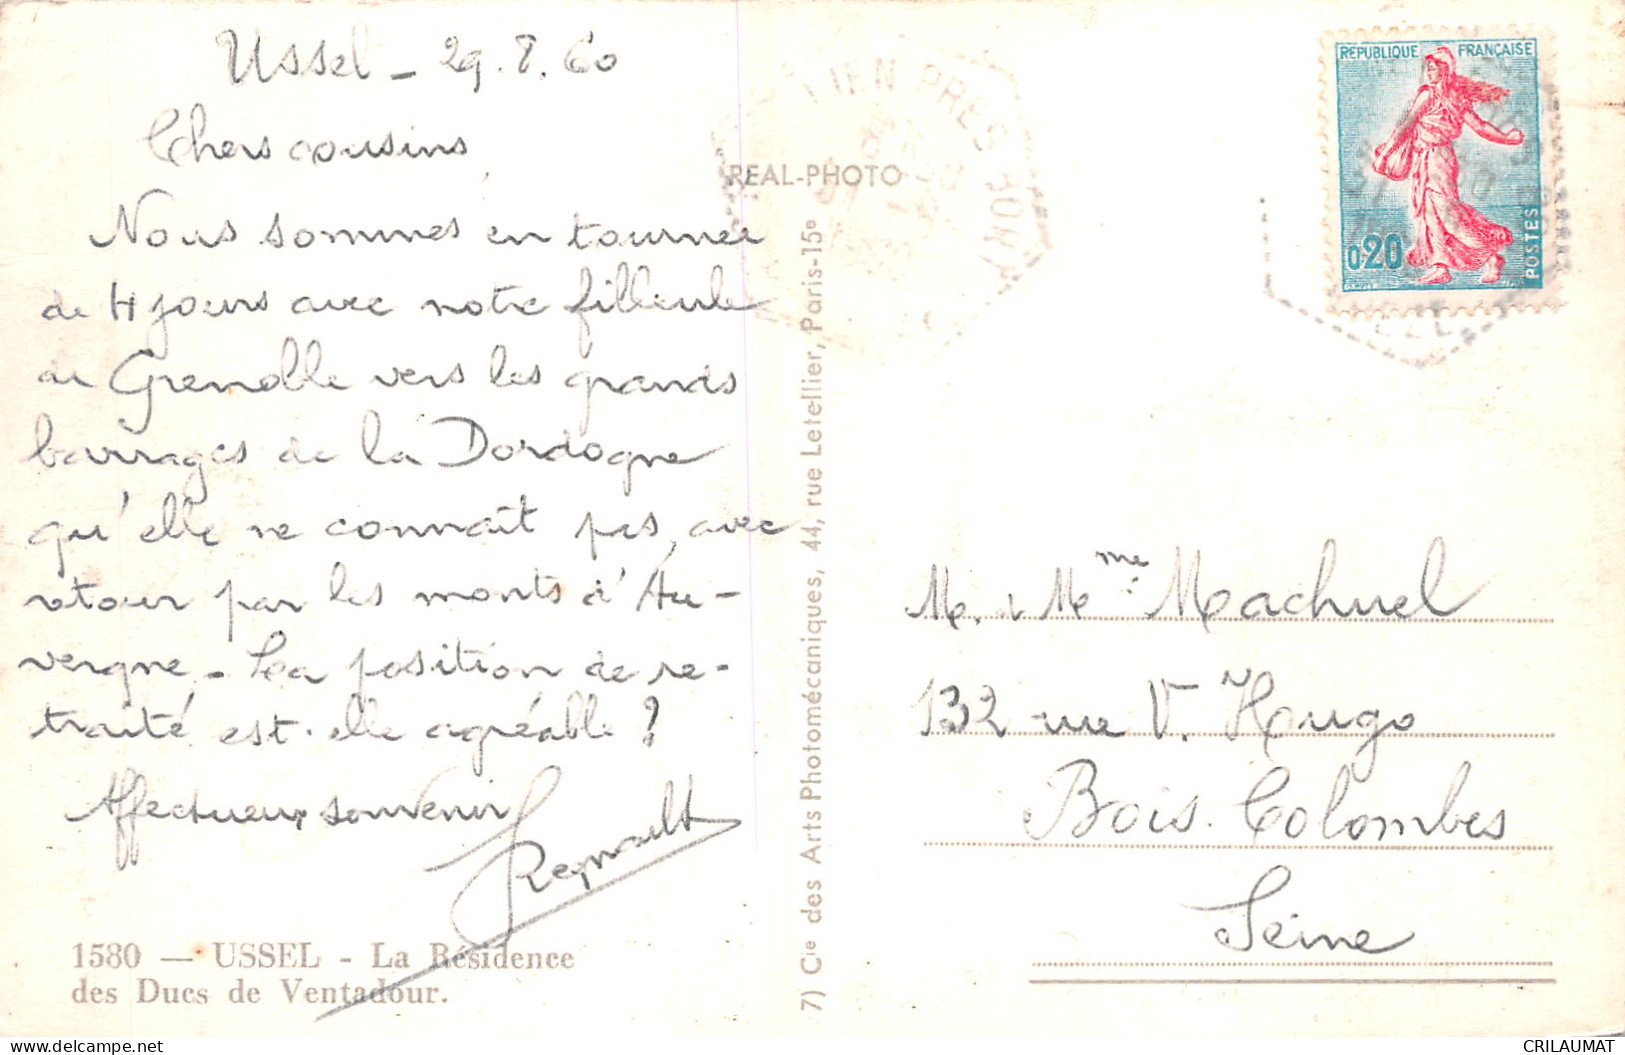 Ussel - 29.8.60
Chers cousins
Nous sommes en tournée
de 4 jours avec notre filleule
de Grenoble vers les grands
barrages de la Dordogne
qu'elle ne connaît pas, avec
retour par les monts d'Au-
vergne. La position de re-
traité est-elle agréable ?
Affectueux souvenir
Regnault
1580 — USSEL - La Résidence
des Ducs de Ventadour.
REAL-PHOTO
7) Cie des Arts Photomécaniques, 44, rue Letellier, Paris-15e
IEN PRES BORT
REPUBLIQUE FRANÇAISE
0,20
POSTES
M. & Mme Machuel
132 rue V. Hugo
Bois-Colombes
Seine
CRILAUMAT